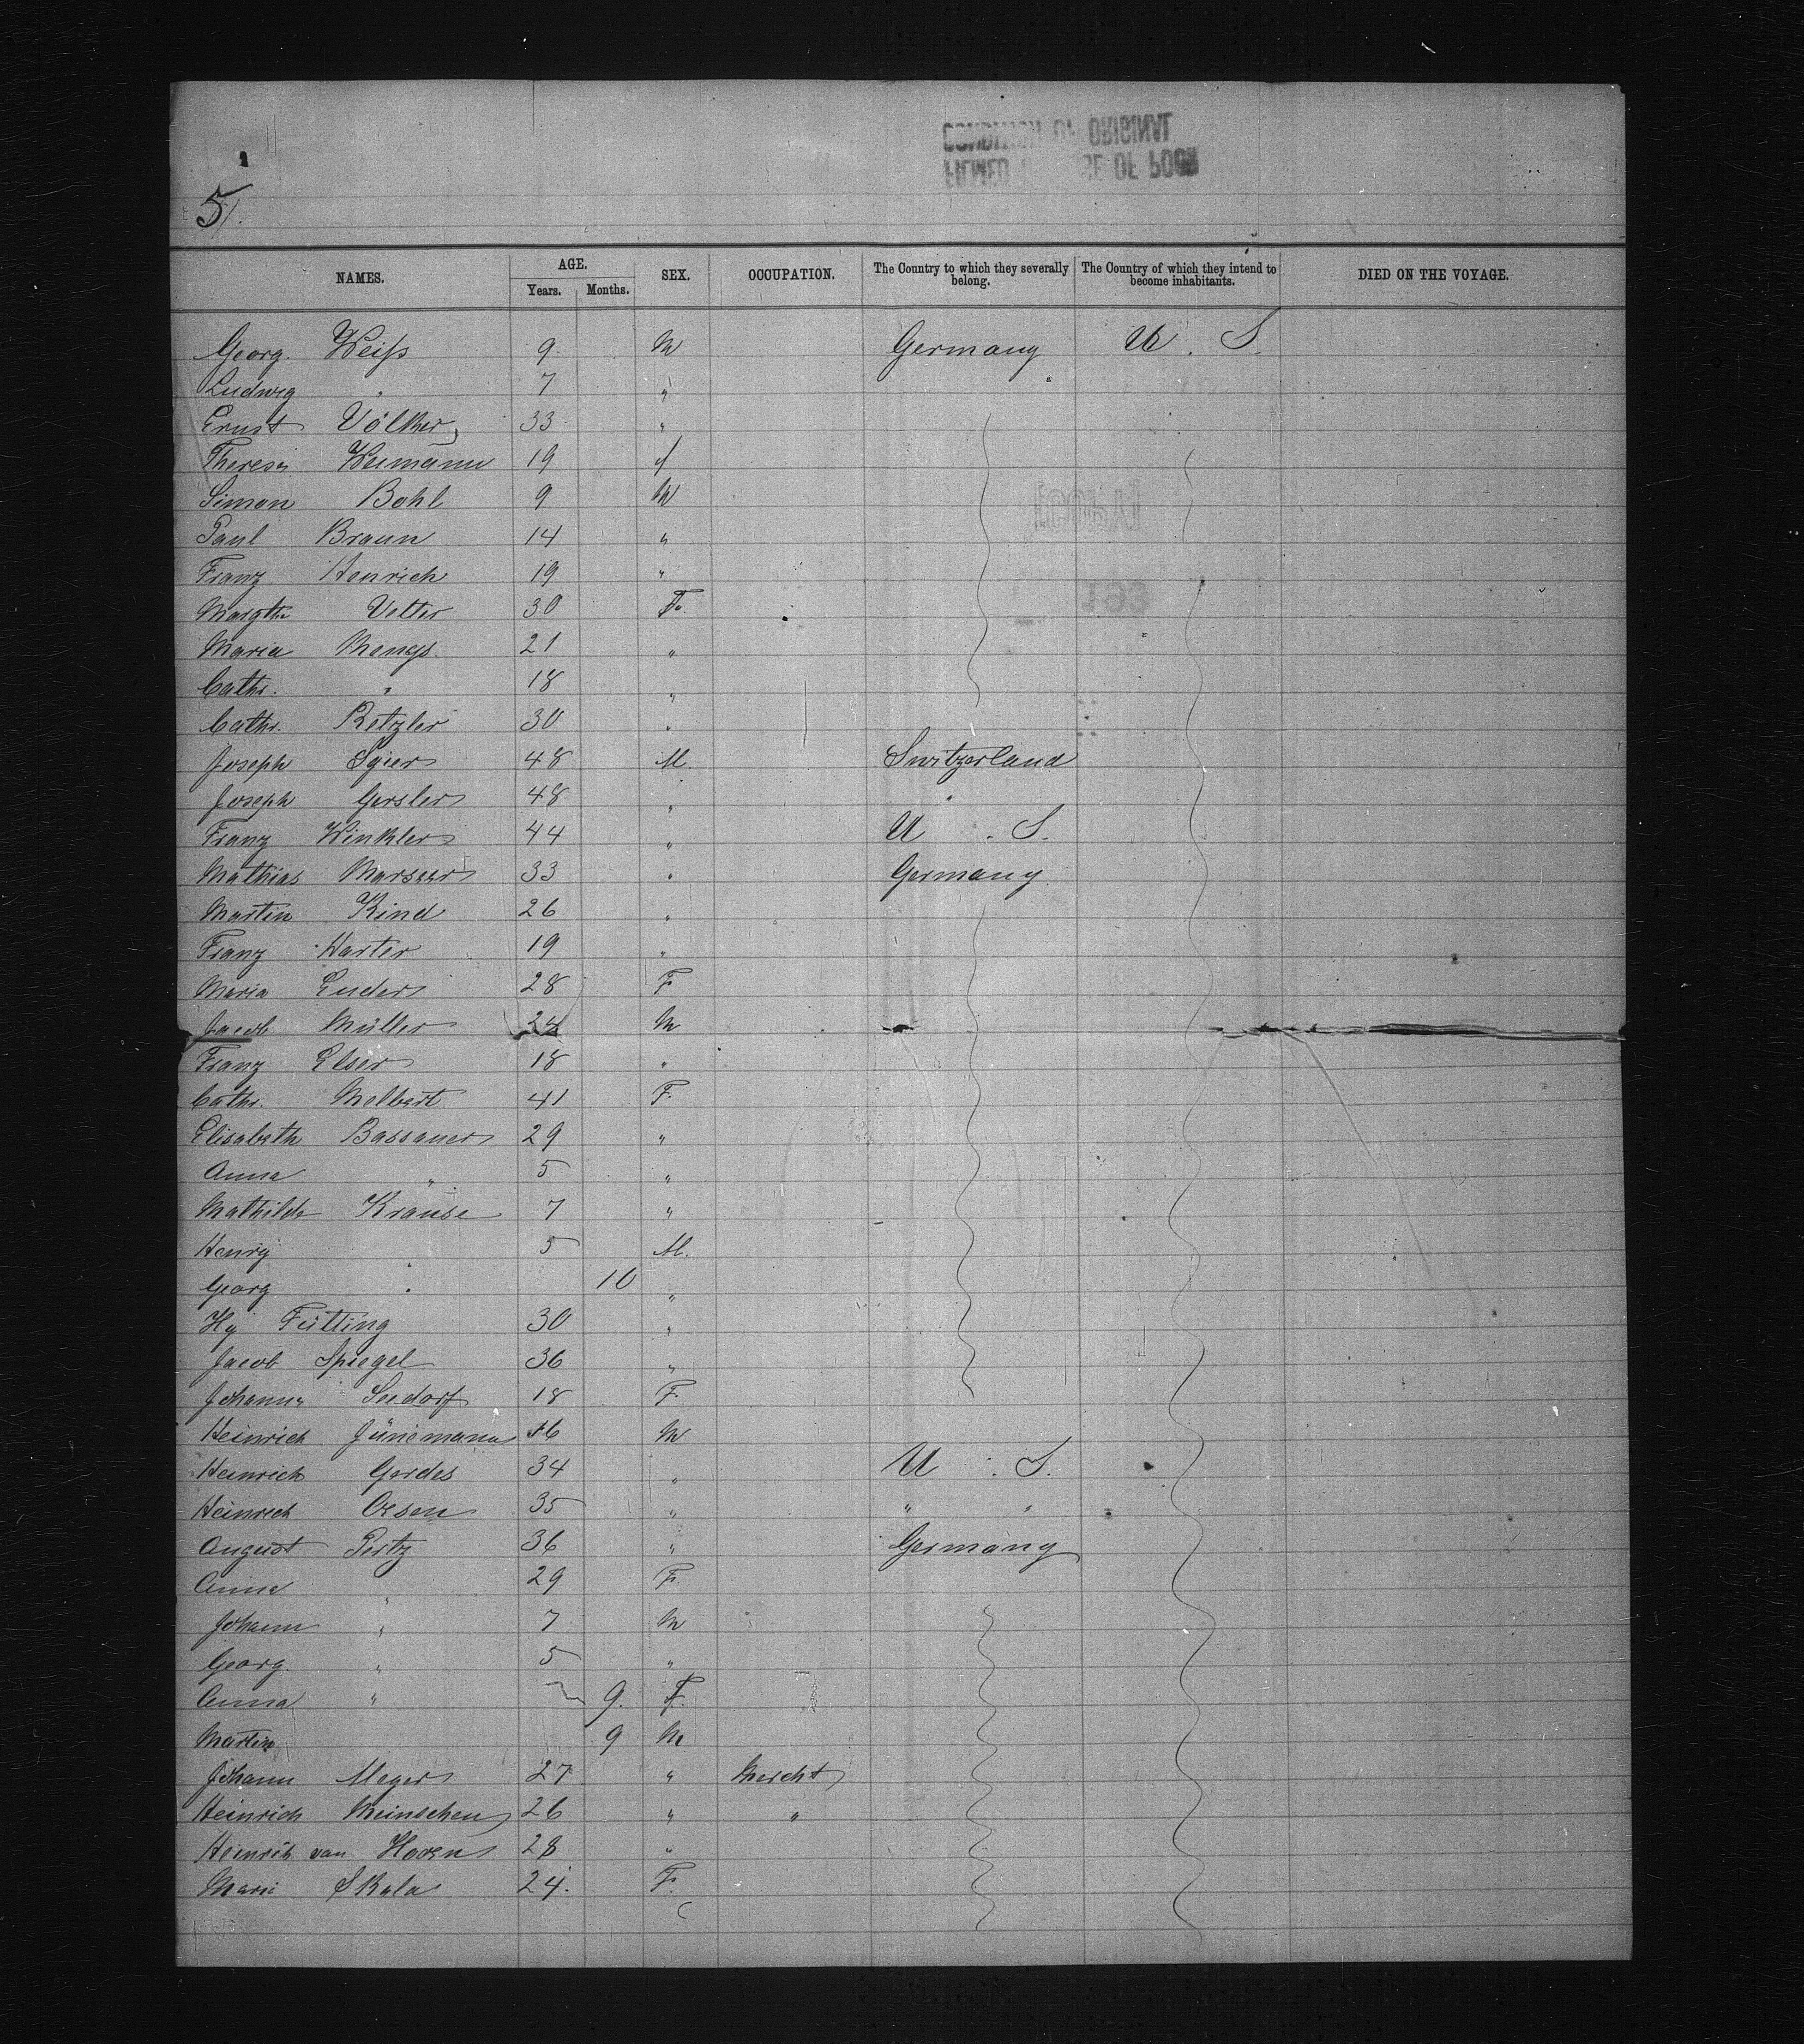 5/.
NAMES. AGE. Years. Months. SEX. OCCUPATION. The Country to which they severally belong. The Country of which they intend to become inhabitants. DIED ON THE VOYAGE.
Georg. Weiß 9 M Germany U. S.
Ludwig " 7 "
Ernst Völker 33 "
Theresa Weimann 19 f
Simon Bohl 9 M
Paul Braun 14 "
Franz Henrich 19 "
Margthe Vetter 30 F.
Maria Mengs 21 "
Cathr. " 18 "
Cathr. Retzler 30 "
Joseph Sgier 48 M. Switzerland
Joseph Gersler 48 " "
Franz Winkler 44 " U. S.
Mathias 33 " Germany
Martin Kind 26 "
Franz Harter 19 "
Maria Enders 28 F
Jacob Müller 24 M
Franz Elser 18 "
Cathr. Melbert 41 F.
Elisabeth Bassauer 29 "
Anna " 5 "
Mathilde Krause 7 "
Henry " 5 M.
Georg " 10 "
Hy Fütting 30 "
Jacob Spiegel 36 "
Johanna Seedorf 18 F.
Heinrich Jünemann M
Heinrich Gerdes 34 " U. S.
Heinrich 35 " " "
August Pertz 36 " Germany
Anna " 29 F.
Johann " 7 M
Georg. " 5 "
Anna " 9. F.
Martin 9 M
Johann Meyer 27 " Mercht
Heinrich Meinschen 26 " "
Heinrich van Horen 28 "
Marie Skala 24. F.